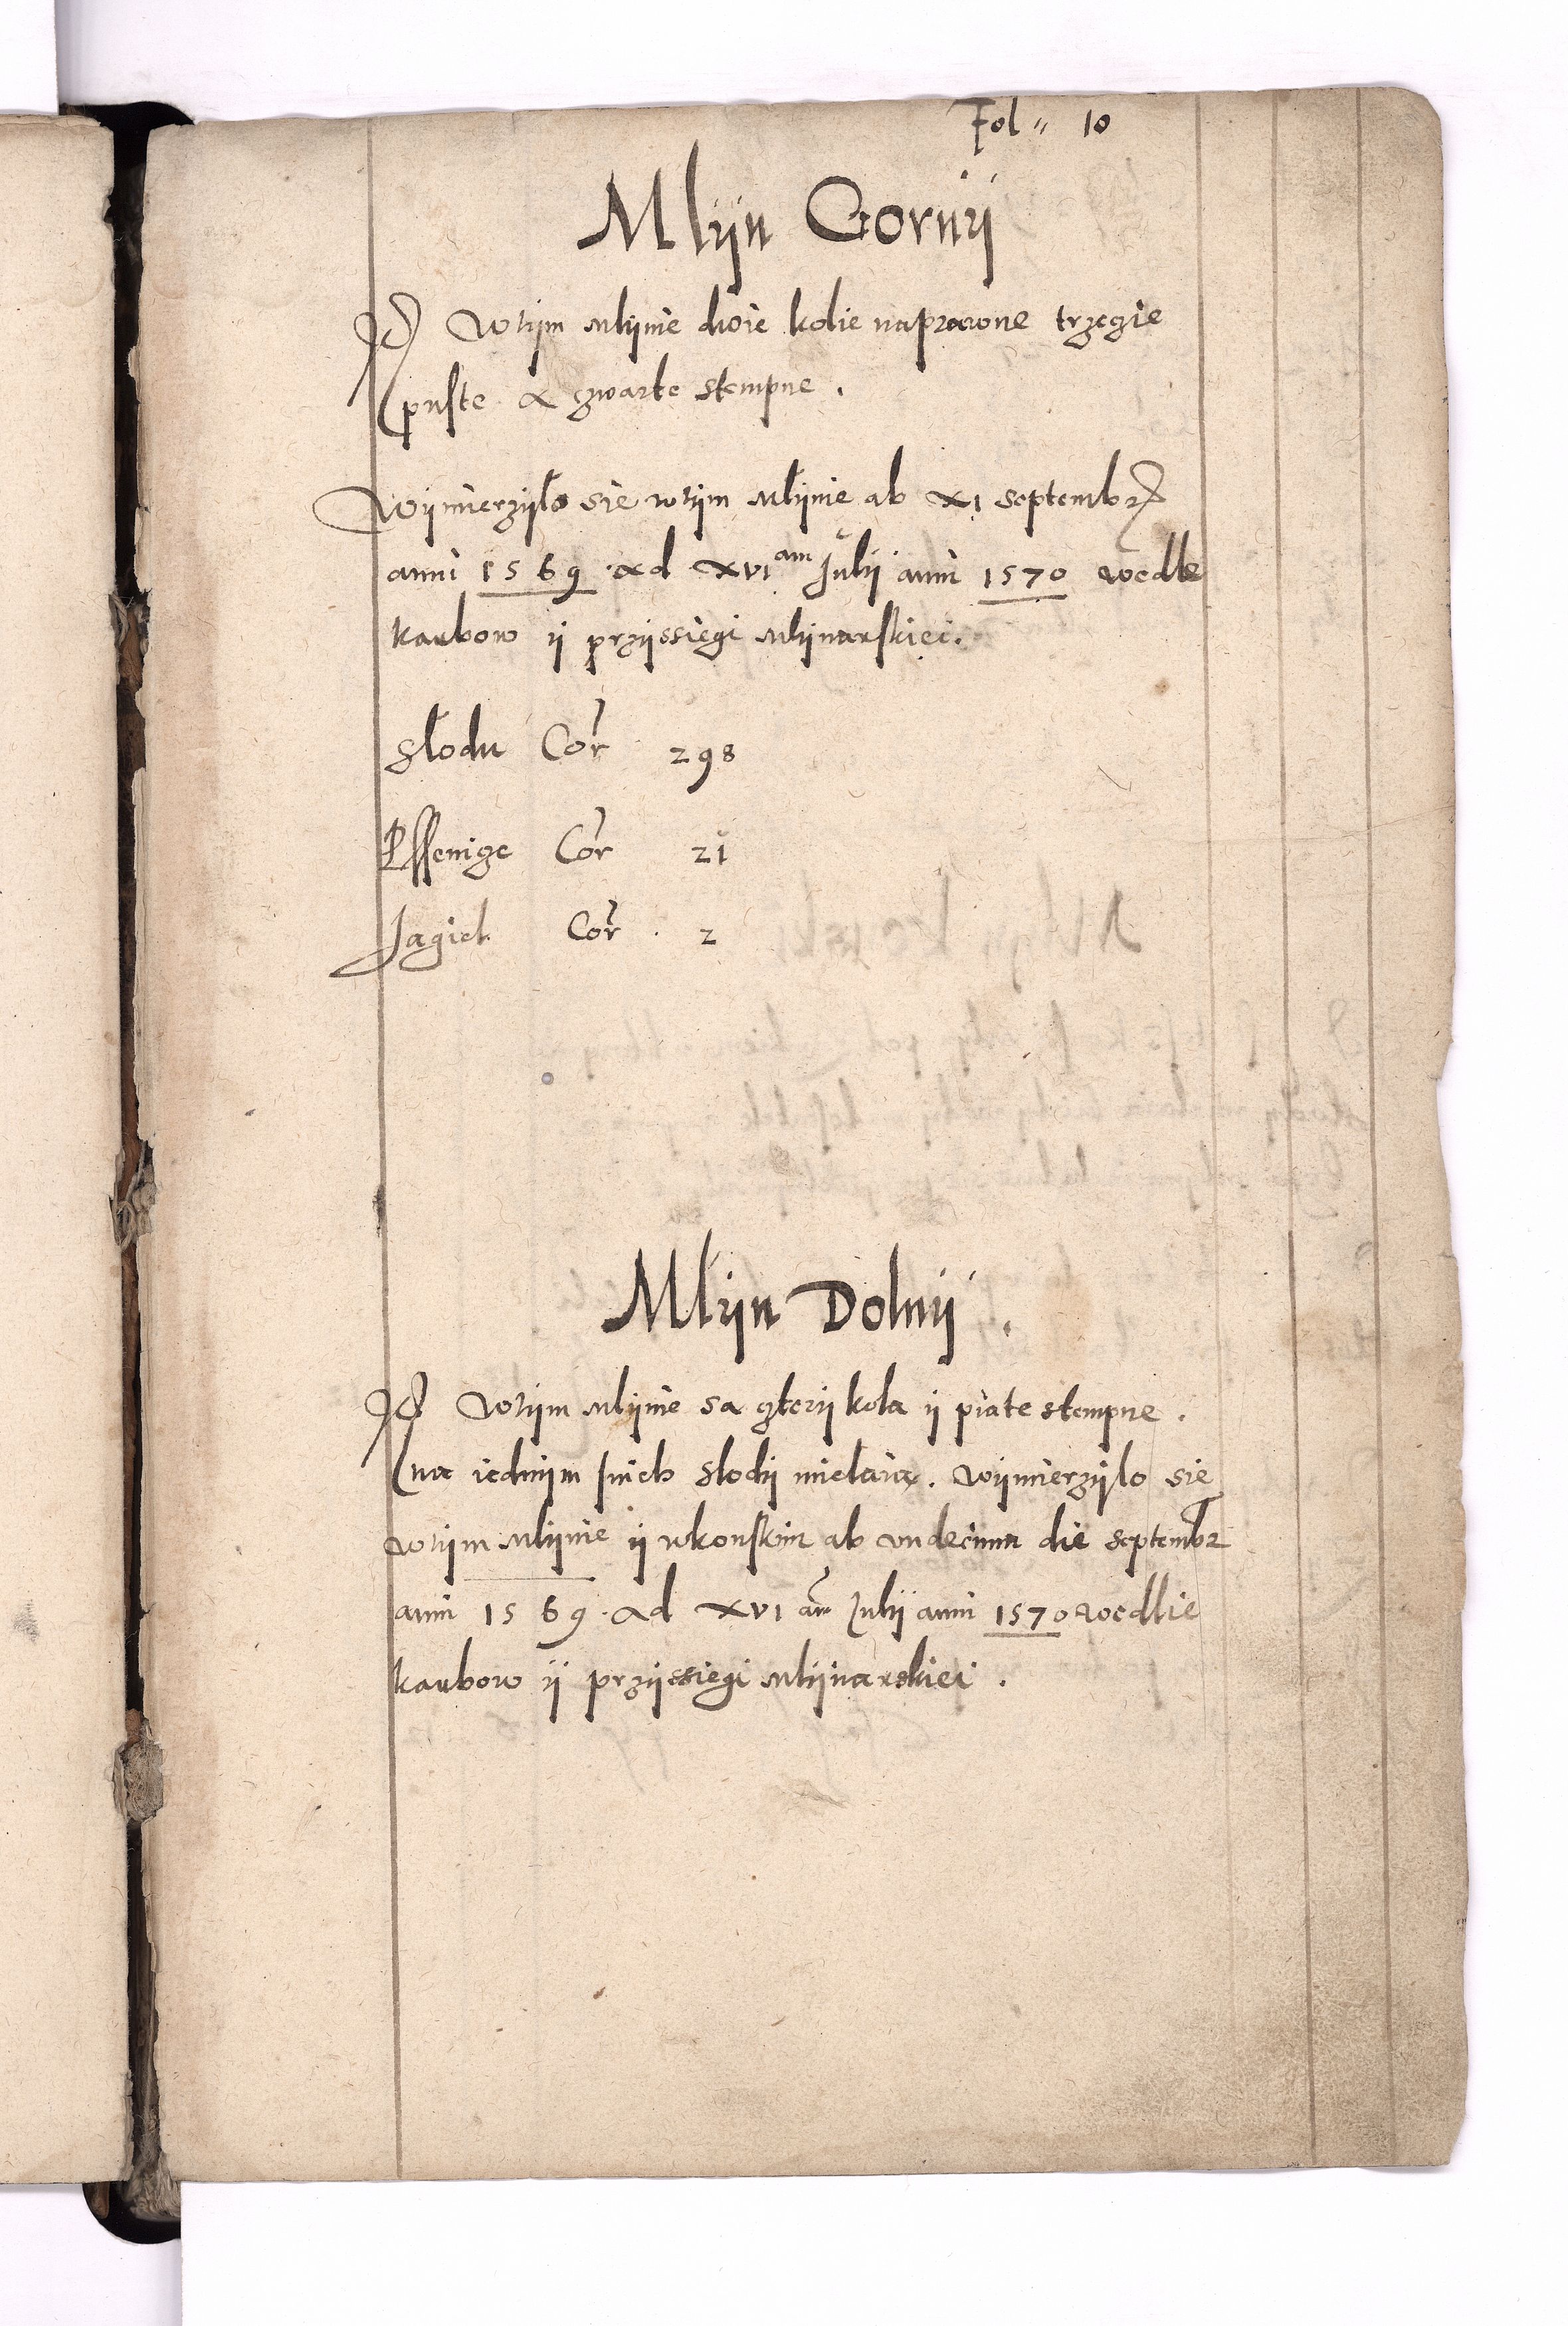 Fol 10
Mlÿn Gornÿ
Itm wtÿm mlÿnie dwie kolie naprawne trzecie
puste a czwarte stempne.
Wÿmierzÿlo sie wtÿm Mlÿnie ab XI septembr
anni 1569 ad XVI am Julii anni 1570 wedle
karbow ÿ przÿssiegi mlÿnarskiei.
słodu Cor 298
Pssenice Cor 21
Jagieł Cor 2
Mlÿn Dolnÿ.
Itm wtÿm mlÿnie sa czterÿ kola ÿ piate stempne.
na iednÿm snich slodÿ mielaią. wÿmierzÿlo sie
wtÿm mlÿnie ÿ wkonskim ab undecima die septembr
anni 1569 ad XVI am Julii anni 1570 wedlie
karbow ÿ przÿssiegi mlÿnarskiei.